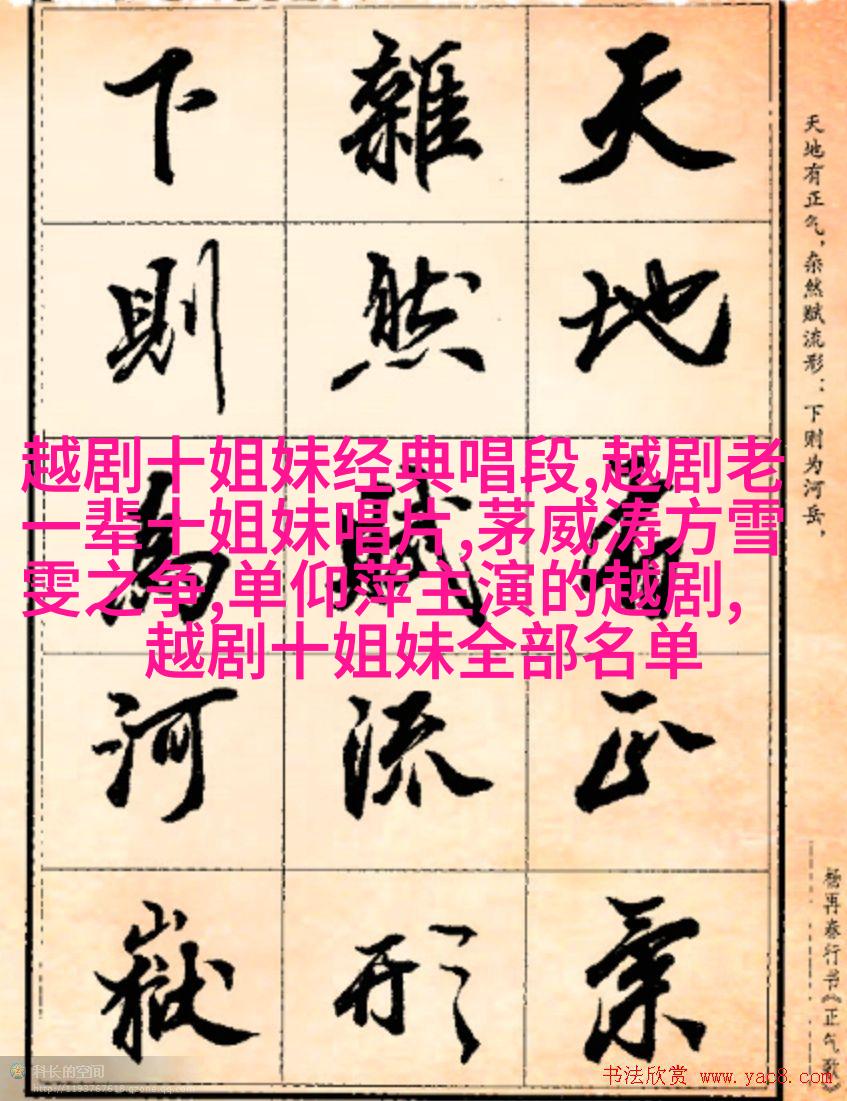 天地有正氣
雜然賦流形
下則為河嶽
天地有正气，杂然赋流形：下则为河岳，
杨再春行书《正气歌》
越剧十姐妹经典唱段,越剧老
一辈十姐妹唱片,茅威涛方雪
雯之争,单仰萍主演的越剧,
越剧十姐妹全部名单
科长的空间
http://1193767618.qzone.qq.com
书法欣赏 www.yac8.com